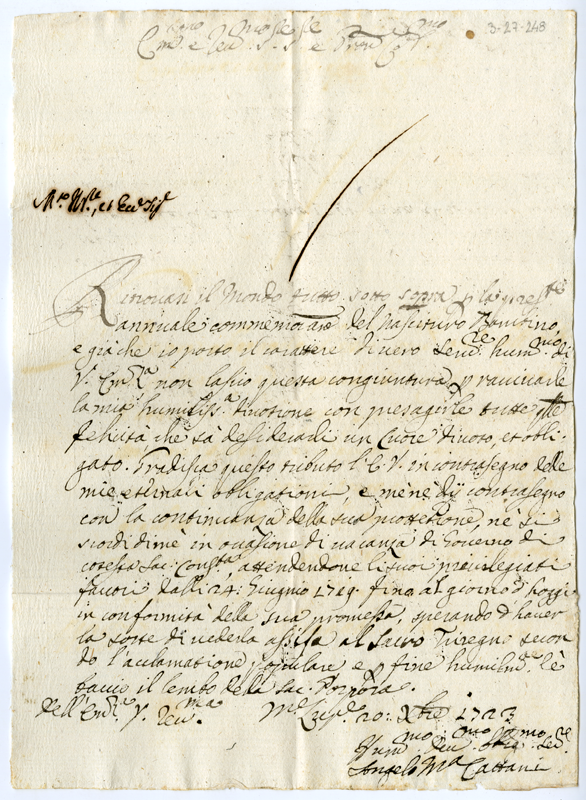 3-27-248
Em.mo e Rev.mo S.r S.r e Pron Col.mo
Rinovasi il Mondo tutto sotto sopra p la pres.te
annuale commemorat.ne del nascituro Bambino,
e già che io porto il carattere di vero Serv.re hum.mo di
V. Em.za non lascio questa congiuntura p ravivarle
la mia humiliss.a divotione con presagirle tutte le
felicità che sà desiderarli un Cuore divoto, et obli-
gato. Gradisca questo tributo l'E. V. in contrasegno delle
mie eternali obligationi, e me ne dij contrasegno
con la continuanza della sua protettione, nè si
scordi di mè in occasione di vacanza di Governo di
cotesta Sac. Consta, attendendone li suoi previlegiati
favori dalli 24: Giugno 1719. fino al giorno d'hoggi
in conformità della sua promessa, sperando d'haver
la sorte di vederla assisa al Sacro Triregno secon
do l'acclamatione popolare e p fine humilm.te lè
baccio il lembo della Sac. Porpora.
Dell'Em.za V. Rev.ma
20: Xbre 1723
Hum.mo Dev.mo Oblig.mo Ser.re
Angelo M.a Cattani